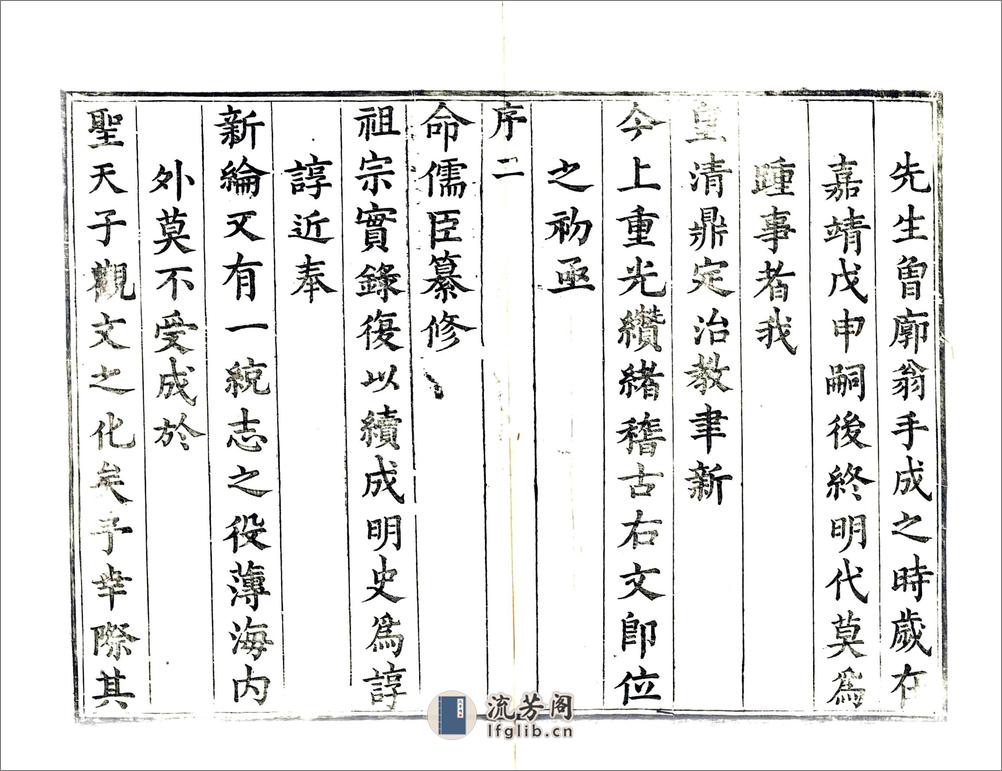 先生曾廓翁手成之時歲在
嘉靖戊申嗣後終明代莫為
踵事者我
皇清鼎定治教聿新
今上重光纘緒稽古右文即位
之初亟
序二
命儒臣纂修
祖宗實錄復以續成明史為諄
諄近奉
新綸又有一統志之役薄海內
外莫不受成於
聖天子觀文之化矣予幸際其
流芳阁
lfglib.cn